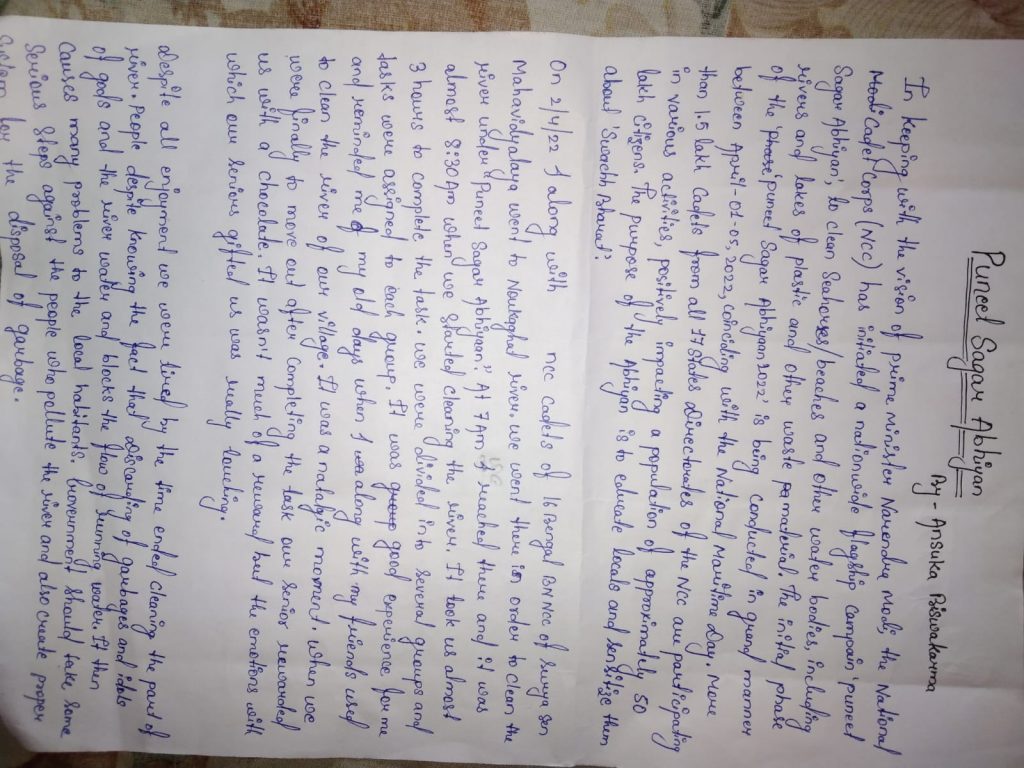 Puneet Sagar Abhiyan
By - Ansuka Biswakarma
In keeping with the vision of prime minister Narendra Modi, the National
Modi Cadet corps (NCC) has initiated a nationwide flagship campain, 'puneet
Sagar Abhiyan', to clean Seashores/beaches and other water bodies, including
rivers and lakes of plastic and other waste pa material. The initial phase
of the phase 'puneet Sagar Abhiyan 2022' is being conducted in grand manner
between April-01-05, 2022, coinciding with the National Maritime Day. More
than 1.5 lakh Cadets from all 17 States Directorates of the NCC are participating
in various activities, positively impacting a population of approximately 50
lakh citizens. The purpose of the Abhiyan is to educate locals and sensitize them
about 'Swachh Bharat'.
On 2/4/22 I along with ncc cadets of 16 Bengal BN NCC of Surya Sen
Mahavidyalaya went to Naukaghat river. we went there in order to clean the
river under "Puneet Sagar Abhiyan". At 7 Am I reached there and it was
almost 8:30 Am when we started cleaning the river. It took us almost
3 hours to complete the task. we were divided into several groups and
tasks were assigned to each group. It was good experience for me
and reminded me of my old days when I along with my friends used
to clean the river of our village. It was a natalgic moment. when we
were finally to move out after completing the task our senior rewarded
us with a chocolate. It wasn't much of a reward but the emotions with
which our seniors gifted us was really touching.
despite all enjoyment we were tired by the time ended cleaning the part of
river. People despite knowing the fact that discarding of garbages and idols
of gods and the river water and blocks the flow of running water. It then
Causes many problems to the local habitants. Government should take some
Serious Steps against the people who pollute the river and also create proper
System for the disposal of garbage.